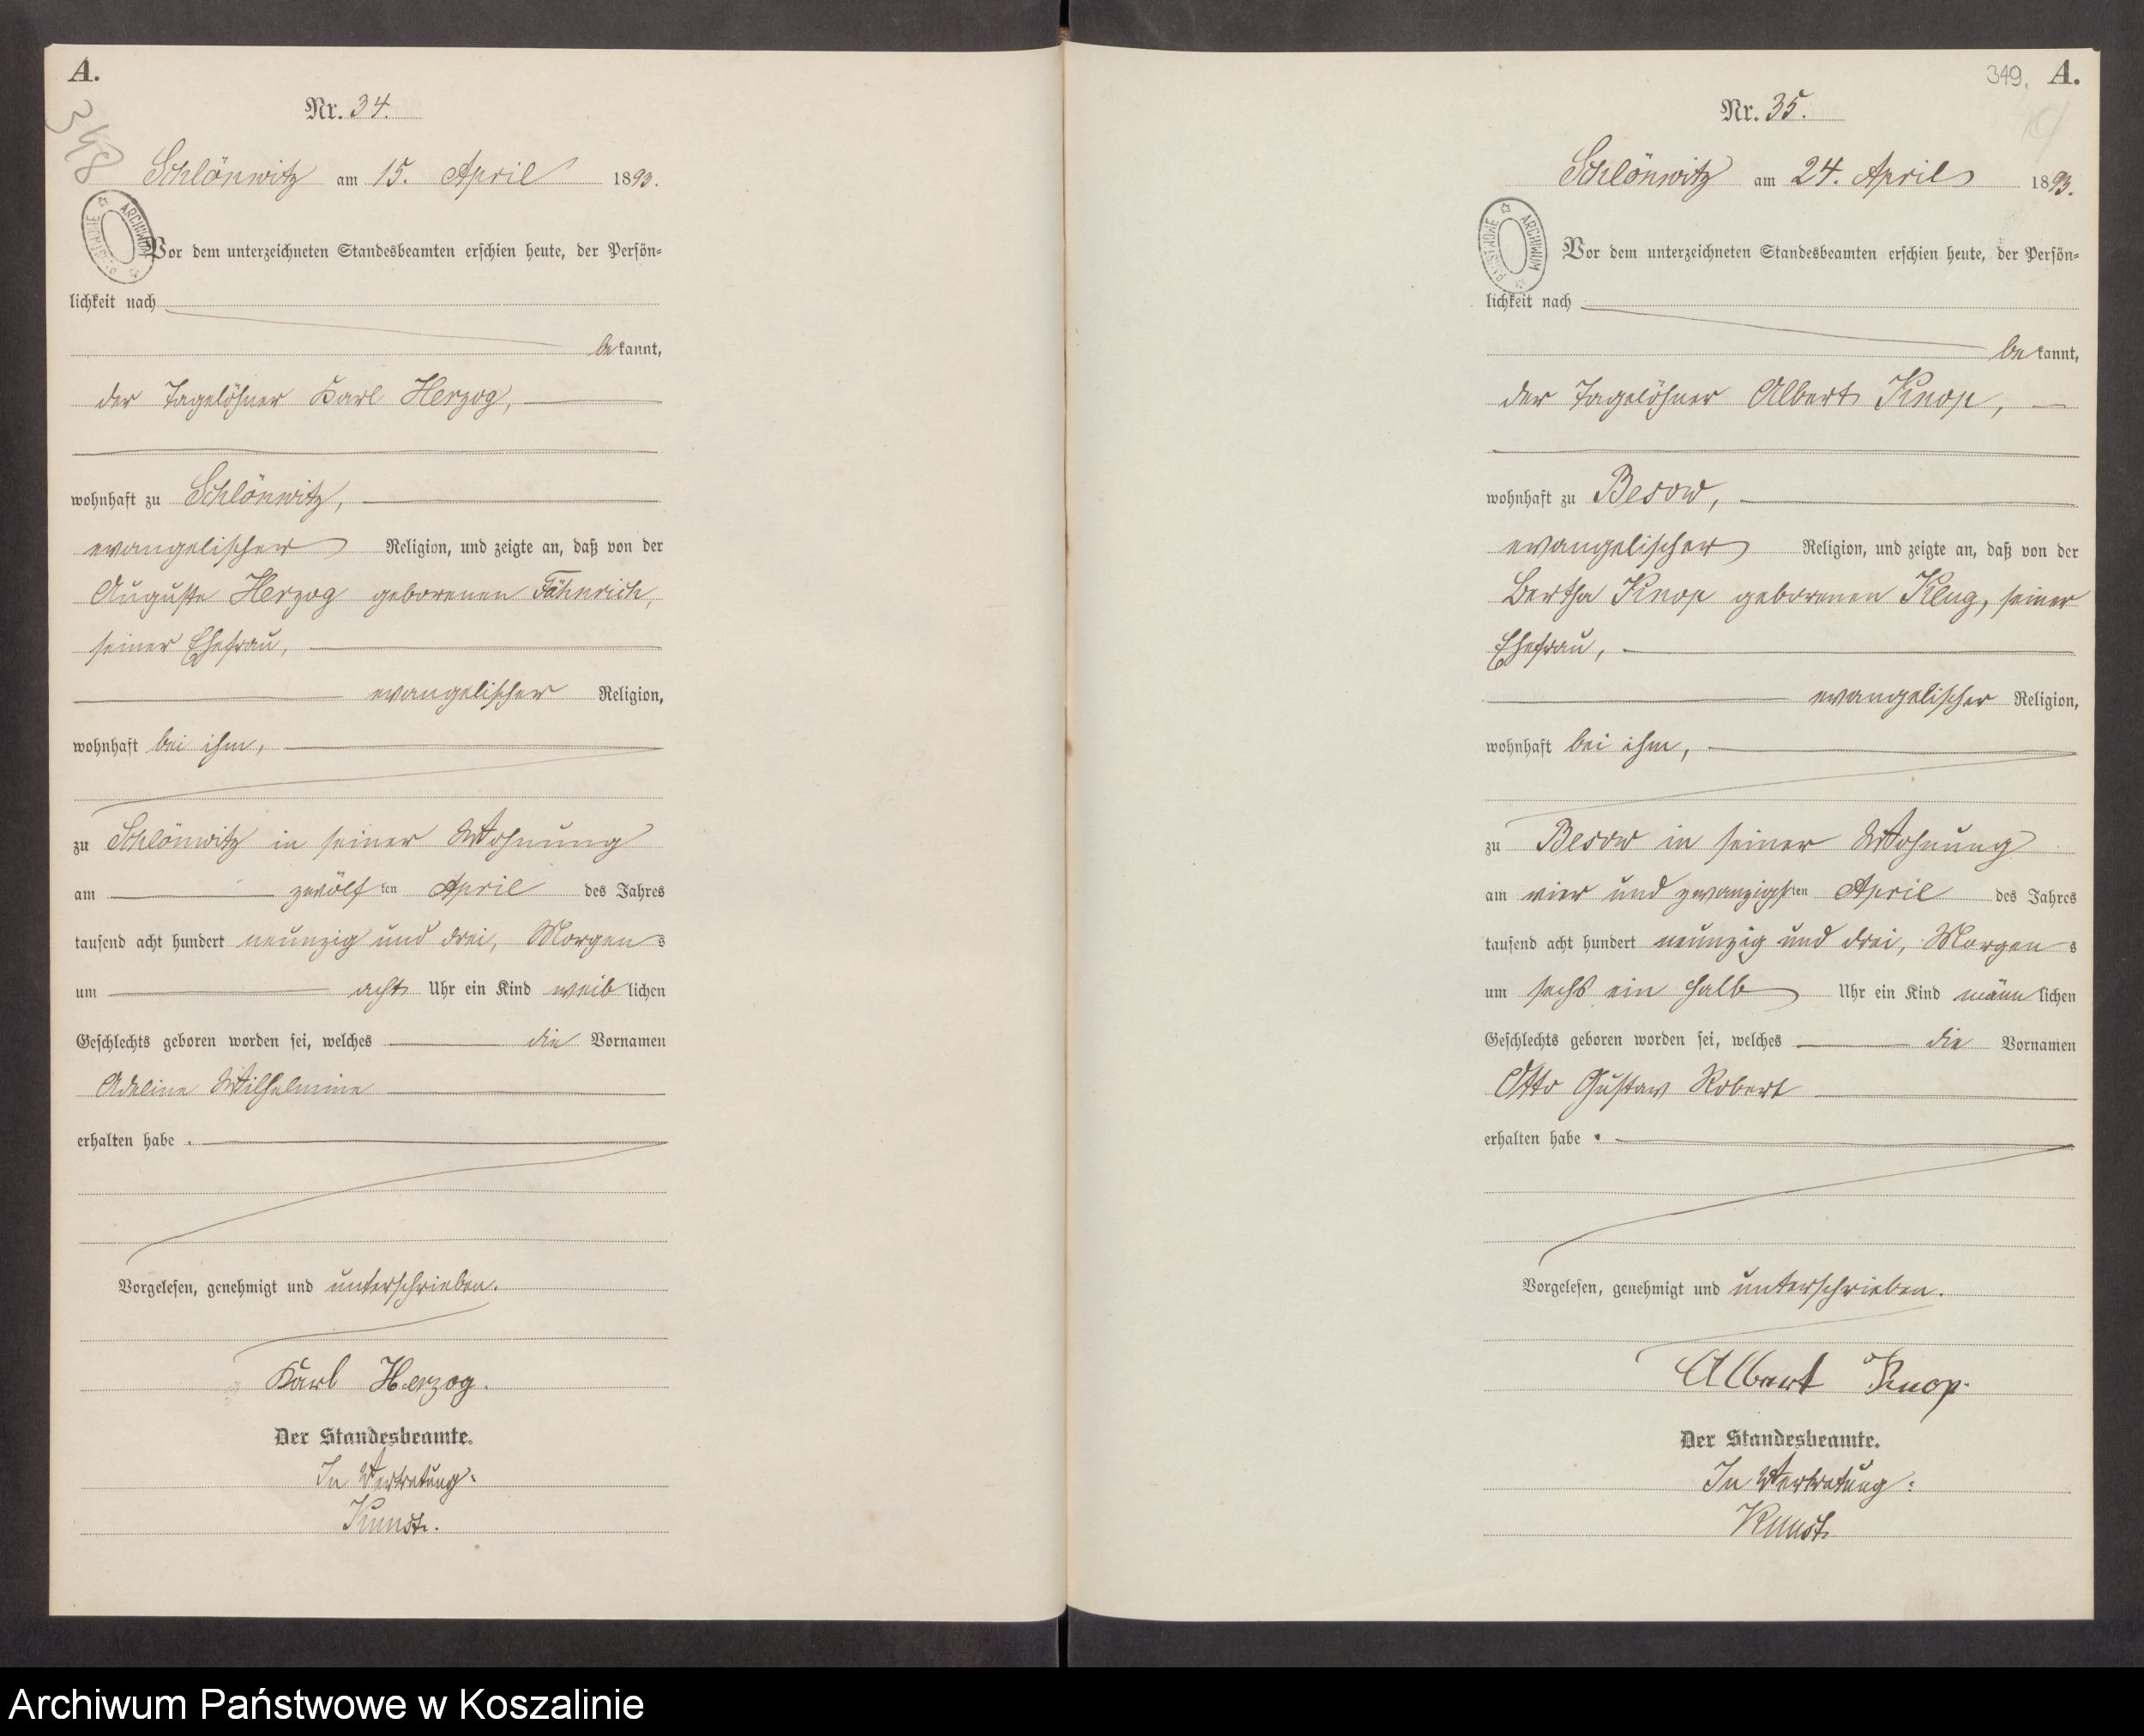 A.
348
Nr. 34.
Schlönwitz am 15. April 1893.
Vor dem unterzeichneten Standesbeamten erschien heute, der Persön=
lichkeit nach
bekannt,
der Tagelöhner Karl Herzog,
wohnhaft zu Schlönwitz,
evangelischer Religion, und zeigte an, daß von der
Auguste Herzog geborenen Fähnrich,
seiner Ehefrau,
evangelischer Religion,
wohnhaft bei ihm,
zu Schlönwitz in seiner Wohnung
am zwölften April des Jahres
tausend acht hundert neunzig und drei, Morgens
um acht Uhr ein Kind weiblichen
Geschlechts geboren worden sei, welches die Vornamen
Adeline Wilhelmine
erhalten habe.
Vorgelesen, genehmigt und unterschrieben.
Karl Herzog.
Der Standesbeamte.
In Vertretung:
Kunst.
ARCHIWUM PAŃSTWOWE
349. A.
Nr. 35.
Schlönwitz am 24. April 1893.
Vor dem unterzeichneten Standesbeamten erschien heute, der Persön=
lichkeit nach
bekannt,
der Tagelöhner Albert Knop,
wohnhaft zu Besow,
evangelischer Religion, und zeigte an, daß von der
Bertha Knop geborenen Klug, seiner
Ehefrau,
evangelischer Religion,
wohnhaft bei ihm,
zu Besow in seiner Wohnung
am vier und zwanzigsten April des Jahres
tausend acht hundert neunzig und drei, Morgens
um sechs ein halb Uhr ein Kind männlichen
Geschlechts geboren worden sei, welches die Vornamen
Otto Gustav Robert
erhalten habe.
Vorgelesen, genehmigt und unterschrieben.
Albert Knop.
Der Standesbeamte.
In Vertretung:
Kunst.
ARCHIWUM PAŃSTWOWE
Archiwum Państwowe w Koszalinie